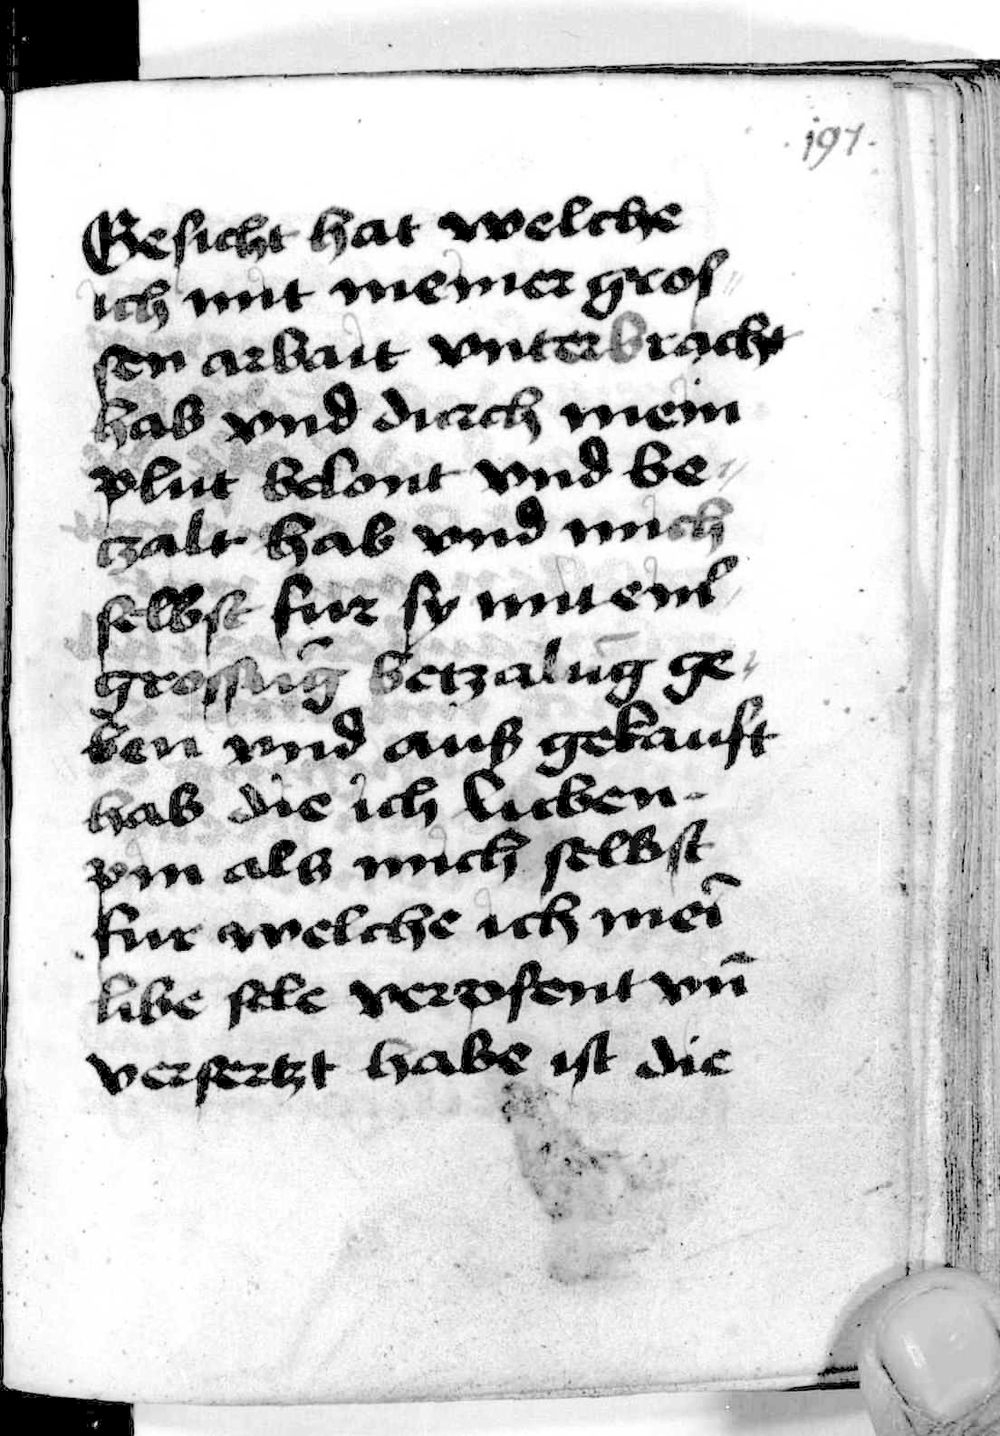 197.
Gesicht hat welche
ich mit meiner gros-
sen arbait vnterbracht
hab vnd durch mein
plut belont vnd be-
tzalt hab vnd mich
selbst fur sy mit einr
grossūg betzalūg ge-
ben vnd auß gekauft
hab die ich lieben
pin als mich selbst
fur welche ich mei᷑
libe sele verpfent vn̄
versertzt habe ist die